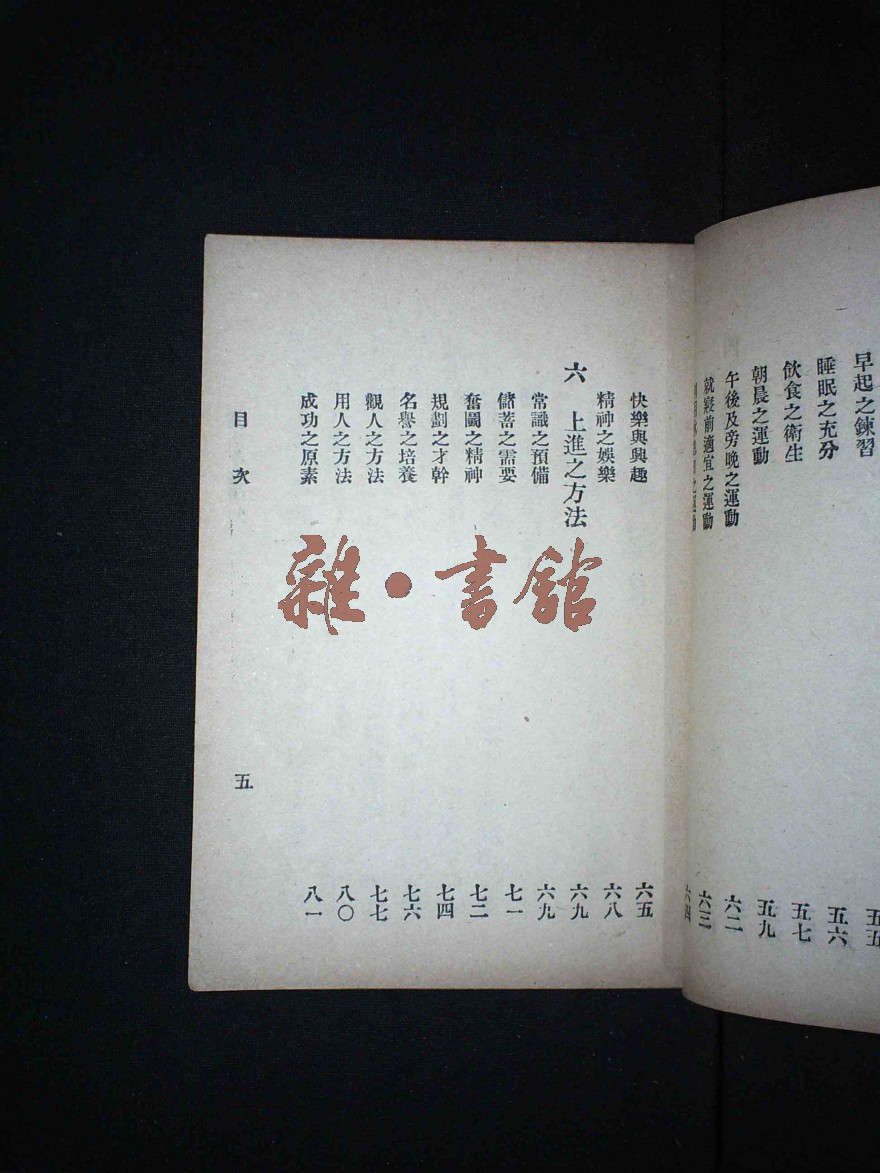 早起之鍊習 五五
睡眠之充分 五六
飲食之衛生 五七
朝晨之運動 五九
午後及旁晚之運動 六二
就寢前適宜之運動 六三
之運動 六四
快樂與興趣 六五
精神之娛樂 六八
六 上進之方法 六九
常識之預備 六九
儲蓄之需要 七一
奮鬭之精神 七二
規劃之才幹 七四
名譽之培養 七六
觀人之方法 七七
用人之方法 八〇
成功之原素 八一
目次 五
雜·書館